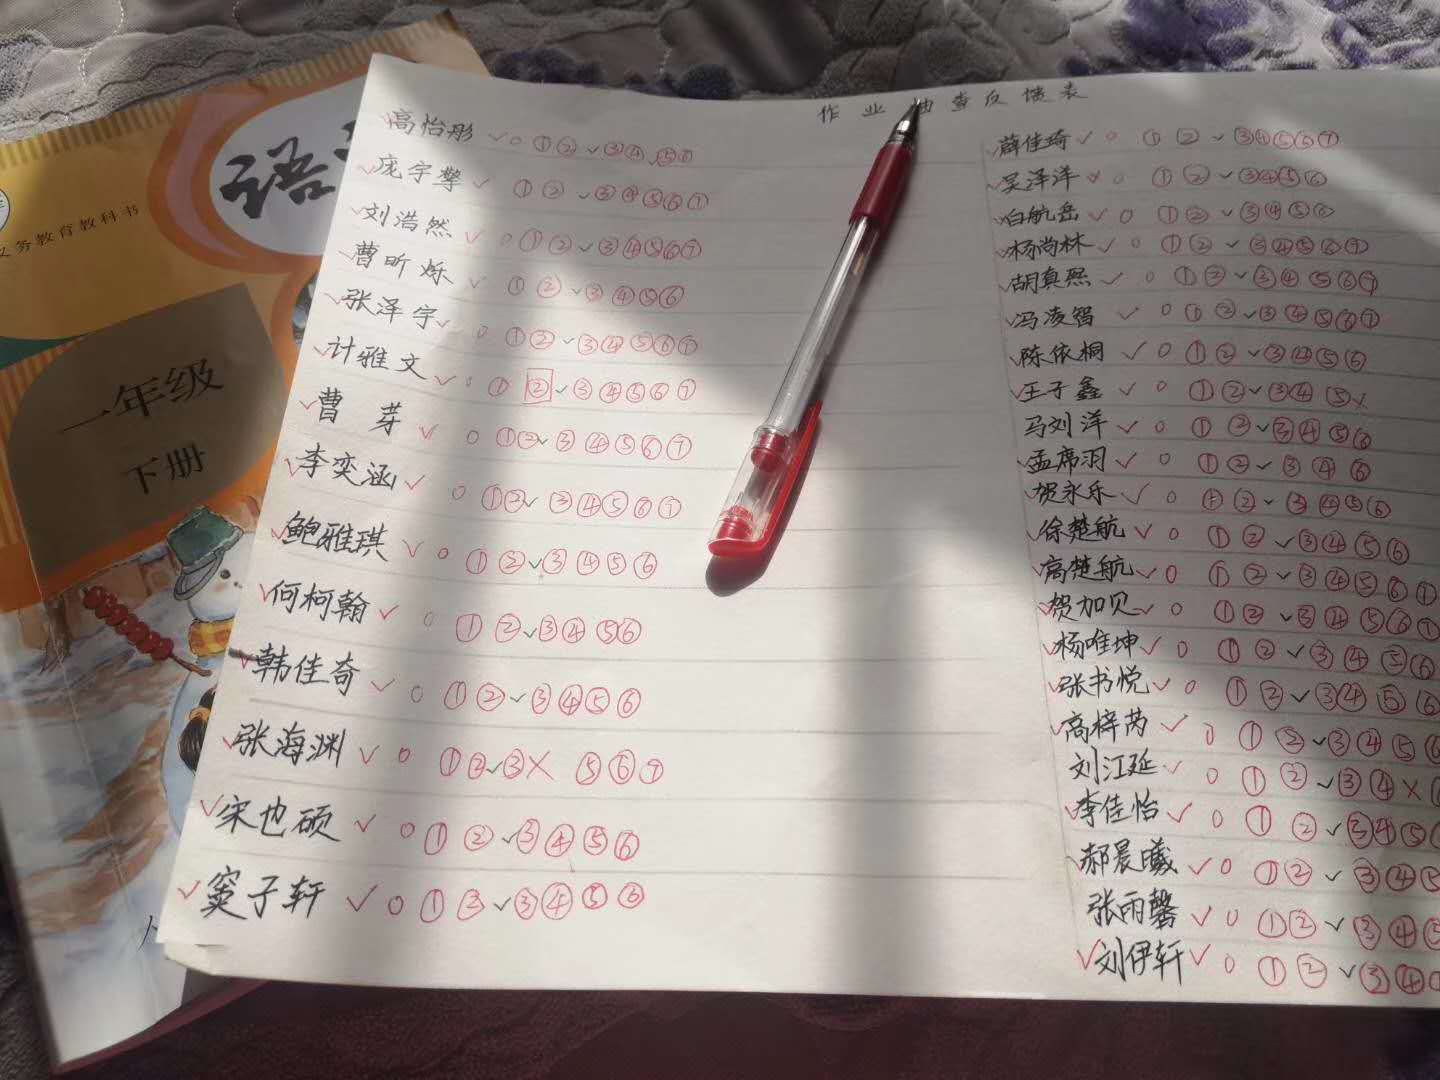 作业抽查反馈表
高怡彤 ✓ ○ ① ② ✓ ③ ④ ⑤ ⑥
庞宇擎 ✓ ① ② ✓ ③ ④ ⑤ ⑥ ⑦
刘浩然 ✓ ○ ① ② ✓ ③ ④ ⑤ ⑥ ⑦
曹昕烁 ✓ ① ② ✓ ③ ④ ⑤ ⑥
张泽宇 ✓ ○ ① ② ✓ ③ ④ ⑤ ⑥ ⑦
计雅文 ✓ ○ ① ② ✓ ③ ④ ⑤ ⑥ ⑦
曹芽 ✓ ○ ① ② ✓ ③ ④ ⑤ ⑥ ⑦
李奕涵 ✓ ○ ① ② ✓ ③ ④ ⑤ ⑥ ⑦
鲍雅琪 ✓ ○ ① ② ✓ ③ ④ ⑤ ⑥
何柯翰 ✓ ○ ① ② ✓ ③ ④ ⑤ ⑥
韩佳奇 ✓ ○ ① ② ✓ ③ ④ ⑤ ⑥
张海渊 ✓ ○ ① ② ✓ ③ × ⑤ ⑥ ⑦
宋也硕 ✓ ○ ① ② ✓ ③ ④ ⑤ ⑥
窦子轩 ✓ ○ ① ② ✓ ③ ④ ⑤ ⑥
薛佳琦 ✓ ○ ① ② ✓ ③ ④ ⑤ ⑥ ⑦
吴泽洋 ✓ ○ ① ② ✓ ③ ④ ⑤ ⑥
白航岳 ✓ ○ ① ② ✓ ③ ④ ⑤ ⑥
杨尚林 ✓ ○ ① ② ✓ ③ ④ ⑤ ⑥ ⑦
胡真熙 ✓ ○ ① ② ✓ ③ ④ ⑤ ⑥ ⑦
冯凌智 ✓ ○ ① ② ✓ ③ ④ ⑤ ⑥ ⑦
陈依桐 ✓ ○ ① ② ✓ ③ ④ ⑤ ⑥
王子鑫 ✓ ○ ① ② ✓ ③ ④ ⑤ ×
马刘洋 ✓ ○ ① ② ✓ ③ ④ ⑤ ⑥
孟席羽 ✓ ○ ① ② ✓ ③ ④ ⑥
贺永乐 ✓ ○ ① ② ✓ ③ ④ ⑤ ⑥
徐楚航 ✓ ○ ① ② ✓ ③ ④ ⑤ ⑥
高楚航 ✓ ○ ① ② ✓ ③ ④ ⑤ ⑥ ⑦
贺加贝 ✓ ○ ① ② ✓ ③ ④ ⑤ ⑥ ⑦
杨唯坤 ✓ ○ ① ② ✓ ③ ④ ⑤ ⑥
张书悦 ✓ ○ ① ② ✓ ③ ④ ⑤ ⑥
高梓芮 ✓ ○ ① ② ✓ ③ ④ ⑤ ⑥
刘江延 ✓ ○ ① ② ✓ ③ ④ ×
李佳怡 ✓ ○ ① ② ✓ ③ ④ ⑤
郝晨曦 ✓ ○ ① ② ✓ ③ ④ ⑤
张雨馨 ✓ ○ ① ② ✓ ③ ④ ⑤
刘伊轩 ✓ ○ ① ② ✓ ③ ④
语
义务教育教科书
一年级
下册
人